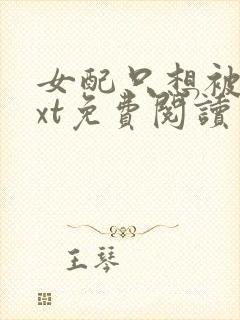 女配只想被
xt免費閱讀
王琴